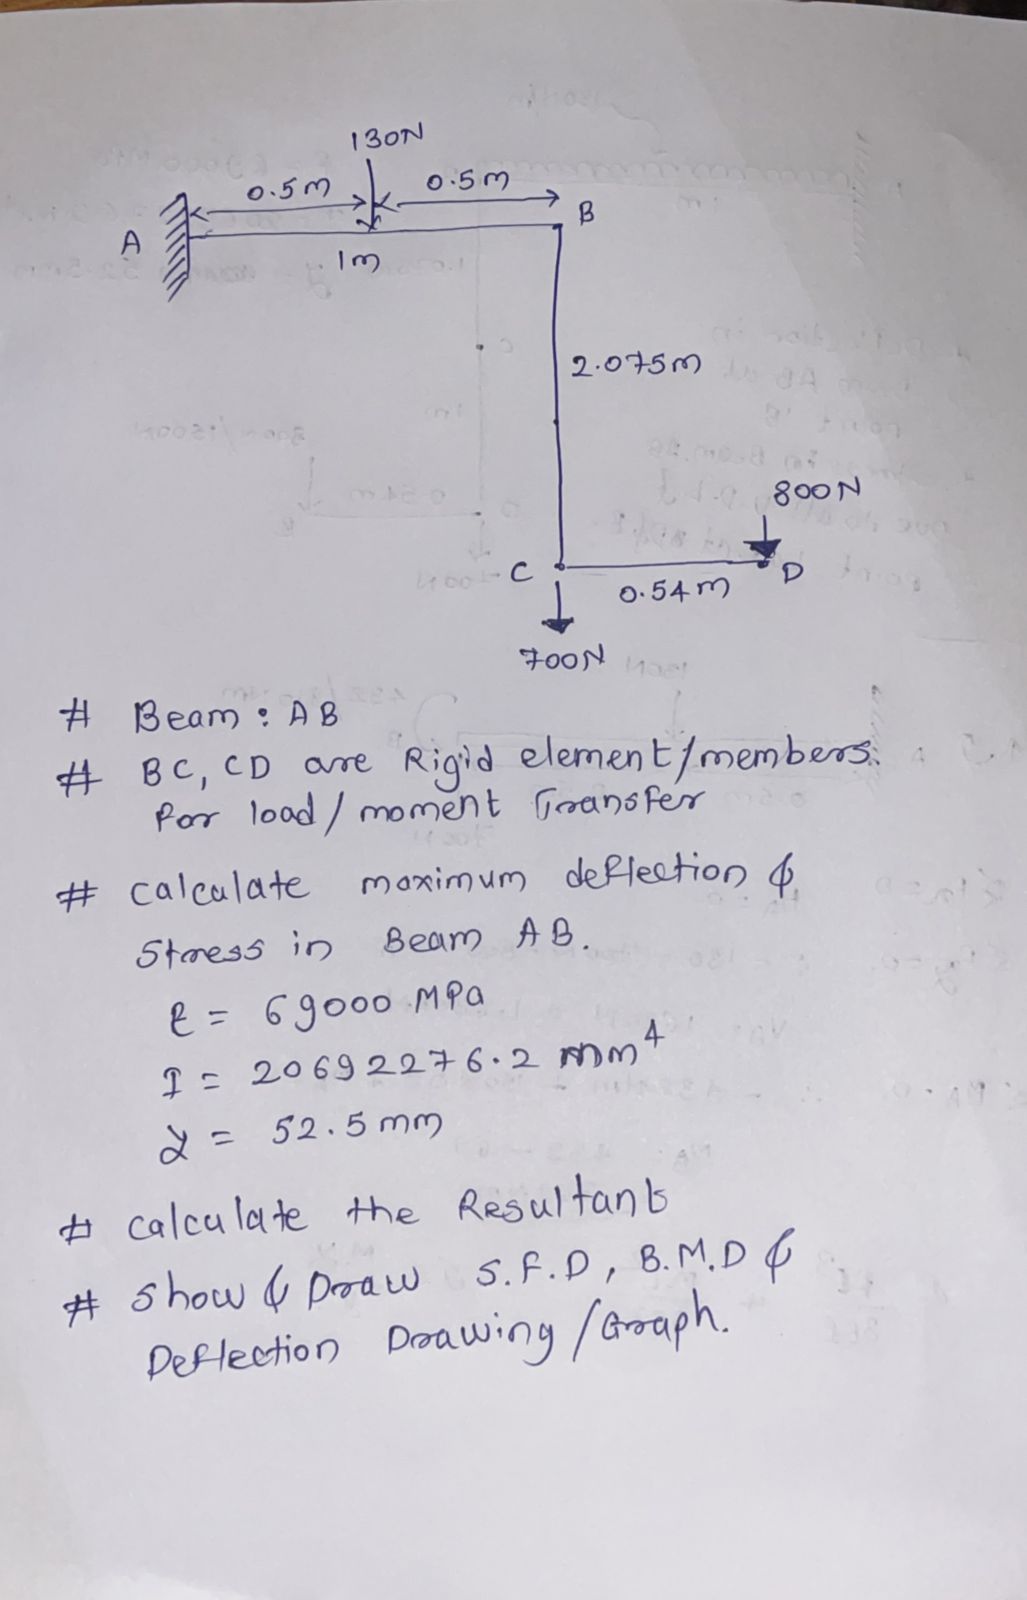 130N
0.5m 0.5m
A B
1m
2.075m
800N
C D
0.54m
700N
# Beam : AB
# BC, CD are Rigid element/members.
for load / moment Transfer
# calculate maximum deflection &
Stress in Beam AB.
E = 69000 MPa
I = 20692276.2 mm⁴
y = 52.5 mm
# calculate the Resultant
# show & Draw S.F.D, B.M.D &
Deflection Drawing / Graph.